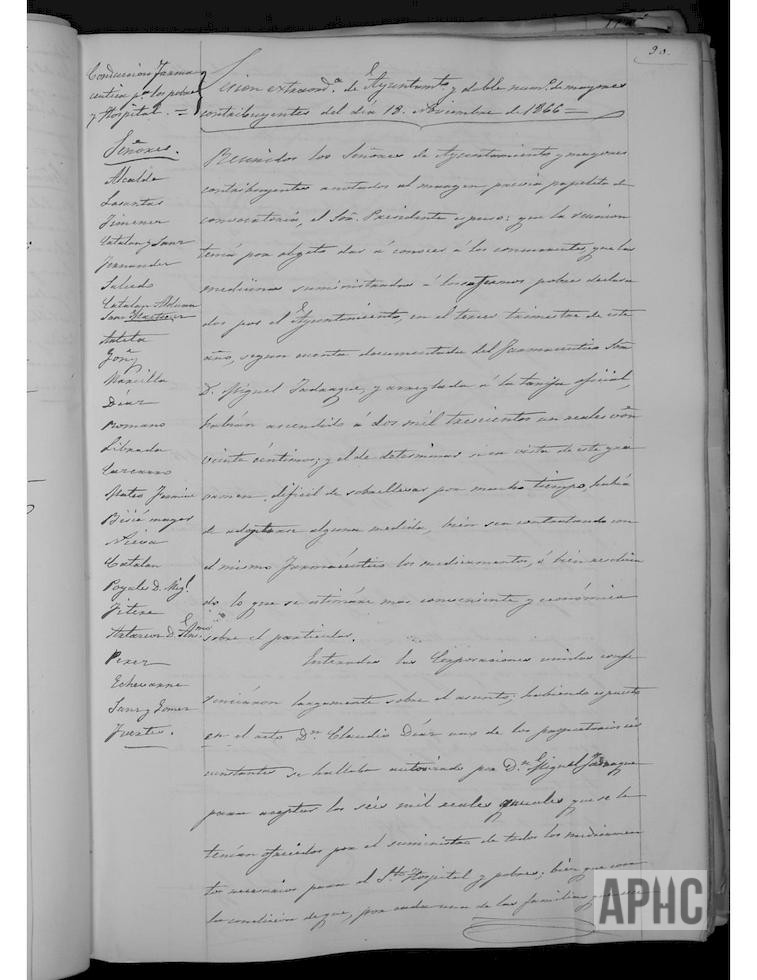 20.
Conduccion Farma
ceutica p.ª los pobres
y Hospital. =
Sesion extraord.ª de Ayuntamto. y doble num.º de mayores
contribuyentes del dia 18. Noviembre de 1866 =
Señores.
Alcalde
Losantos
Jimenez
Catalan y Sanz
Fernandez
Salcedo
Catalan Aldama
Sanz
Goñi
Mancilla
Diaz
Romano
Librada
Mateo Jimenez
Bisié mayor
Catalan
Poyales D. Mig.l
Fitero
Perez
Echevarria
Sanz y Gomez
Fuertes.
Reunidos los Señores de Ayuntamiento y mayores
contribuyentes anotados al margen previa papeleta de
convocatoria, el Sor. Presidente espuso: que la reunion
tenia por objeto dar á conocer á los concurrentes, que las
medicinas suministradas á los enfermos pobres declara
dos por el Ayuntamiento, en el tercer trimestre de este
año, segun cuenta documentada del Farmaceutico Sor.
D. Miguel Jadraque, y arreglada á la tarifa oficial,
habian ascendido á dos mil trescientos un reales von.
veinte céntimos; y el de determinar si en vista de este gra
vamen, dificil de sobrellevar por mucho tiempo, habia
de adoptarse alguna medida, bien sea contratando con
el mismo Farmacéutico los medicamentos, ó bien resolvien
do lo que se estimáre mas conveniente y económico
sobre el particular.
Enteradas las Corporaciones unidas confe
renciaron largamente sobre el asunto; habiendo espuesto
en el acto Dn. Claudio Diaz uno de los propietarios cir
cunstantes se hallaba autorizado por Dn. Miguel Jadraque
para aceptar los seis mil reales anuales que se le
tenian ofrecidos por el suministro de todos los medicamen
tos necesarios para el Sto. Hospital y pobres; bien que con
la condicion de que, por cada una de las familias
APHC